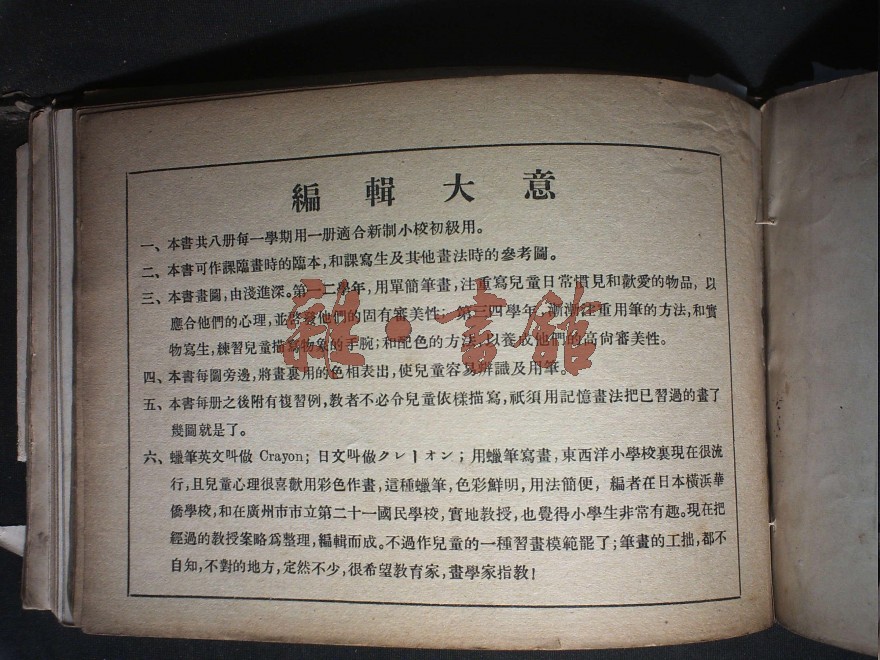 編輯大意
一、本書共八册每一學期用一册適合新制小校初級用。
二、本書可作課臨畫時的臨本，和課寫生及其他畫法時的參考圖。
三、本書畫圖，由淺進深。第一二學年，用單簡筆畫，注重寫兒童日常慣見和歡愛的物品，以
應合他們的心理，並啓發他們的固有審美性；第三四學年，漸漸注重用筆的方法，和實
物寫生，練習兒童描寫物象的手腕；和配色的方法，以養成他們的高尙審美性。
四、本書每圖旁邊，將畫裏用的色相表出，使兒童容易辨識及用筆。
五、本書每册之後附有復習例，教者不必令兒童依樣描寫，祇須用記憶畫法把已習過的畫了
幾圖就是了。
六、蠟筆英文叫做 Crayon；日文叫做クレーオン；用蠟筆寫畫，東西洋小學校裏現在很流
行，且兒童心理很喜歡用彩色作畫，這種蠟筆，色彩鮮明，用法簡便，編者在日本橫浜華
僑學校，和在廣州市市立第二十一國民學校，實地教授，也覺得小學生非常有趣。現在把
經過的教授案略爲整理，編輯而成。不過作兒童的一種習畫模範罷了；筆畫的工拙，都不
自知，不對的地方，定然不少，很希望教育家，畫學家指教！
雜·書館